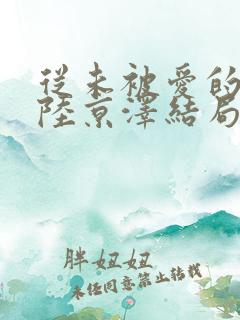 從未被愛的
陸京澤結局
胖妞妞
未经同意禁止转载